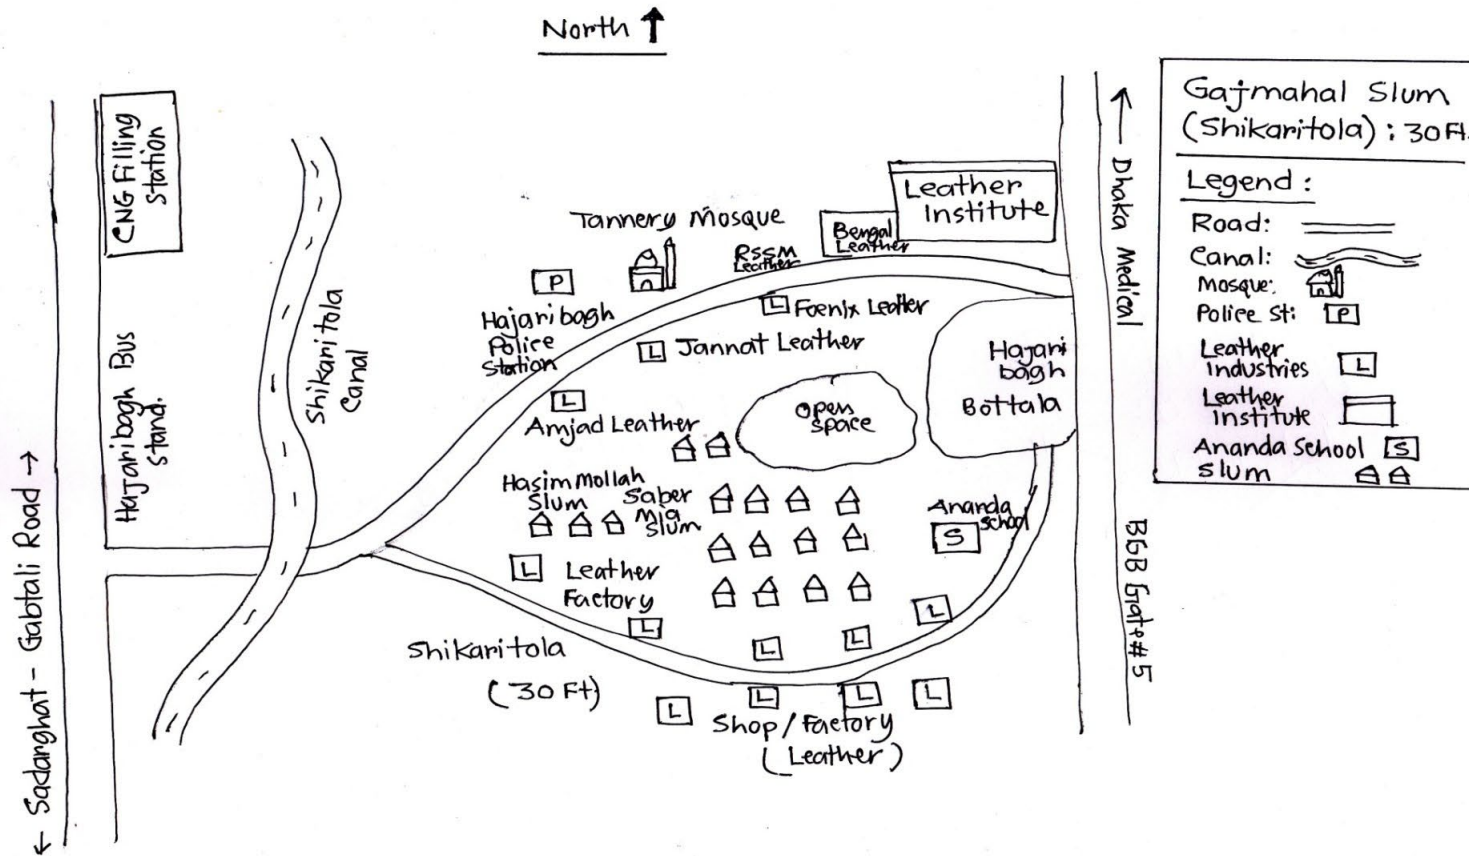 North ↑
CNG Filling
Station
Hajaribogh Bus
Stand.
← Sadarghat - Gabtali Road →
Shikaritola
Canal
Tannery Mosque
P
Hajaribagh
Police
Station
RSSM
Leather
Bengal
Leather
Leather
Institute
L Foenix Leather
L Jannat Leather
L
Amjad Leather
Open
space
Hajari
bagh
Bottala
Hasim Mollah
Slum
Saber
Mia
Slum
Ananda
School
S
L Leather
Factory
L
L
L
L
Shikaritola
(30 Ft)
L
L
L
L
Shop/Factory
(Leather)
← Dhaka Medical
BGB Gate#5
Gajmahal Slum
(Shikaritola) : 30 Ft.
Legend :
Road:
Canal:
Mosque:
Police St: P
Leather
Industries L
Leather
Institute
Ananda School S
Slum